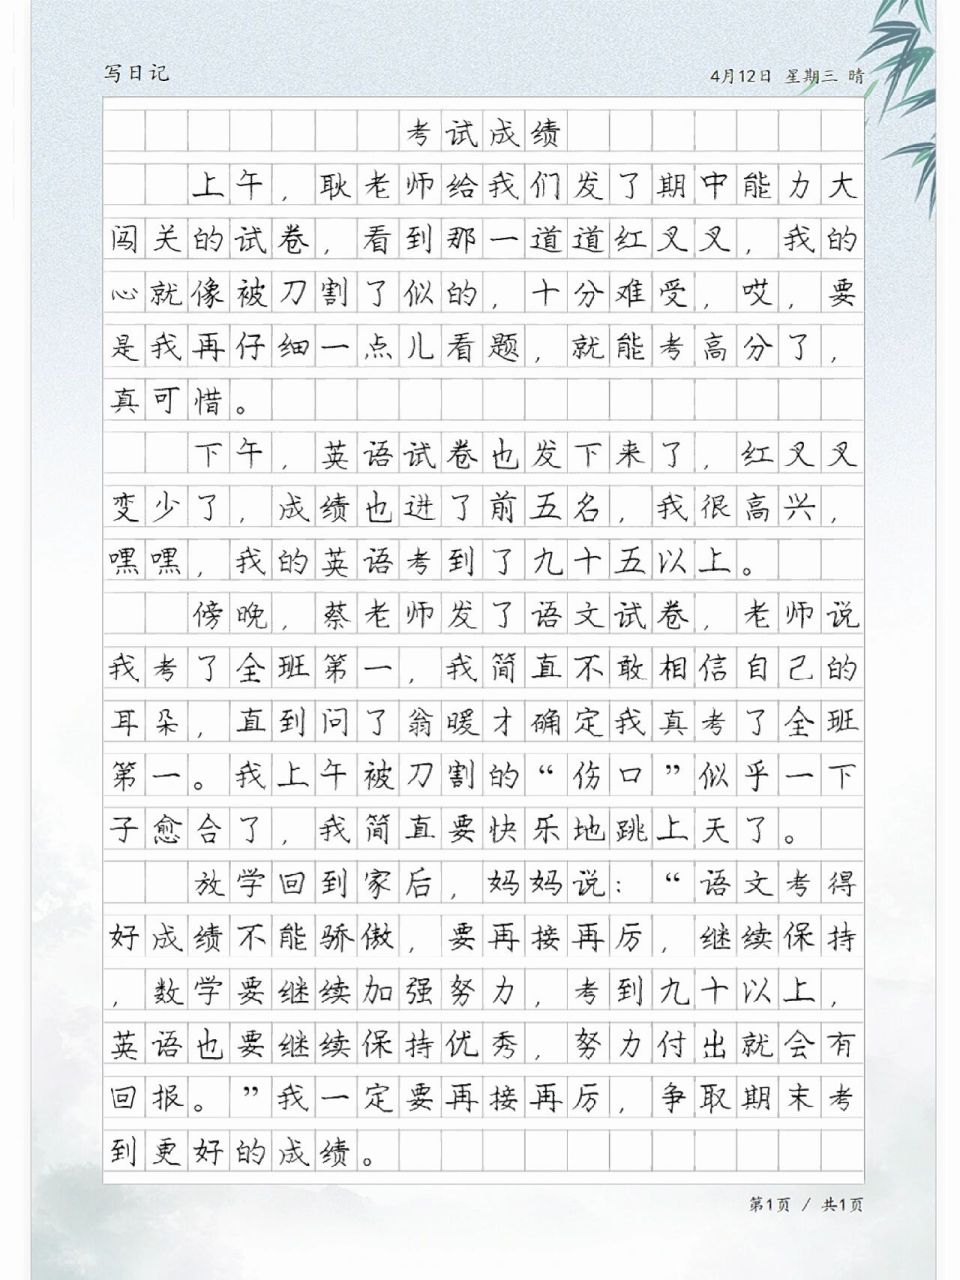 写日记
4月12日 星期三 晴
考试成绩
上午，耿老师给我们发了期中能力大
闯关的试卷，看到那一道道红叉叉，我的
心就像被刀割了似的，十分难受，哎，要
是我再仔细一点儿看题，就能考高分了，
真可惜。
下午，英语试卷也发下来了，红叉叉
变少了，成绩也进了前五名，我很高兴，
嘿嘿，我的英语考到了九十五以上。
傍晚，蔡老师发了语文试卷，老师说
我考了全班第一，我简直不敢相信自己的
耳朵，直到问了翁暖才确定我真考了全班
第一。我上午被刀割的“伤口”似乎一下
子愈合了，我简直要快乐地跳上天了。
放学回到家后，妈妈说：“语文考得
好成绩不能骄傲，要再接再厉，继续保持
，数学要继续加强努力，考到九十以上，
英语也要继续保持优秀，努力付出就会有
回报。”我一定要再接再厉，争取期末考
到更好的成绩。
第1页 / 共1页